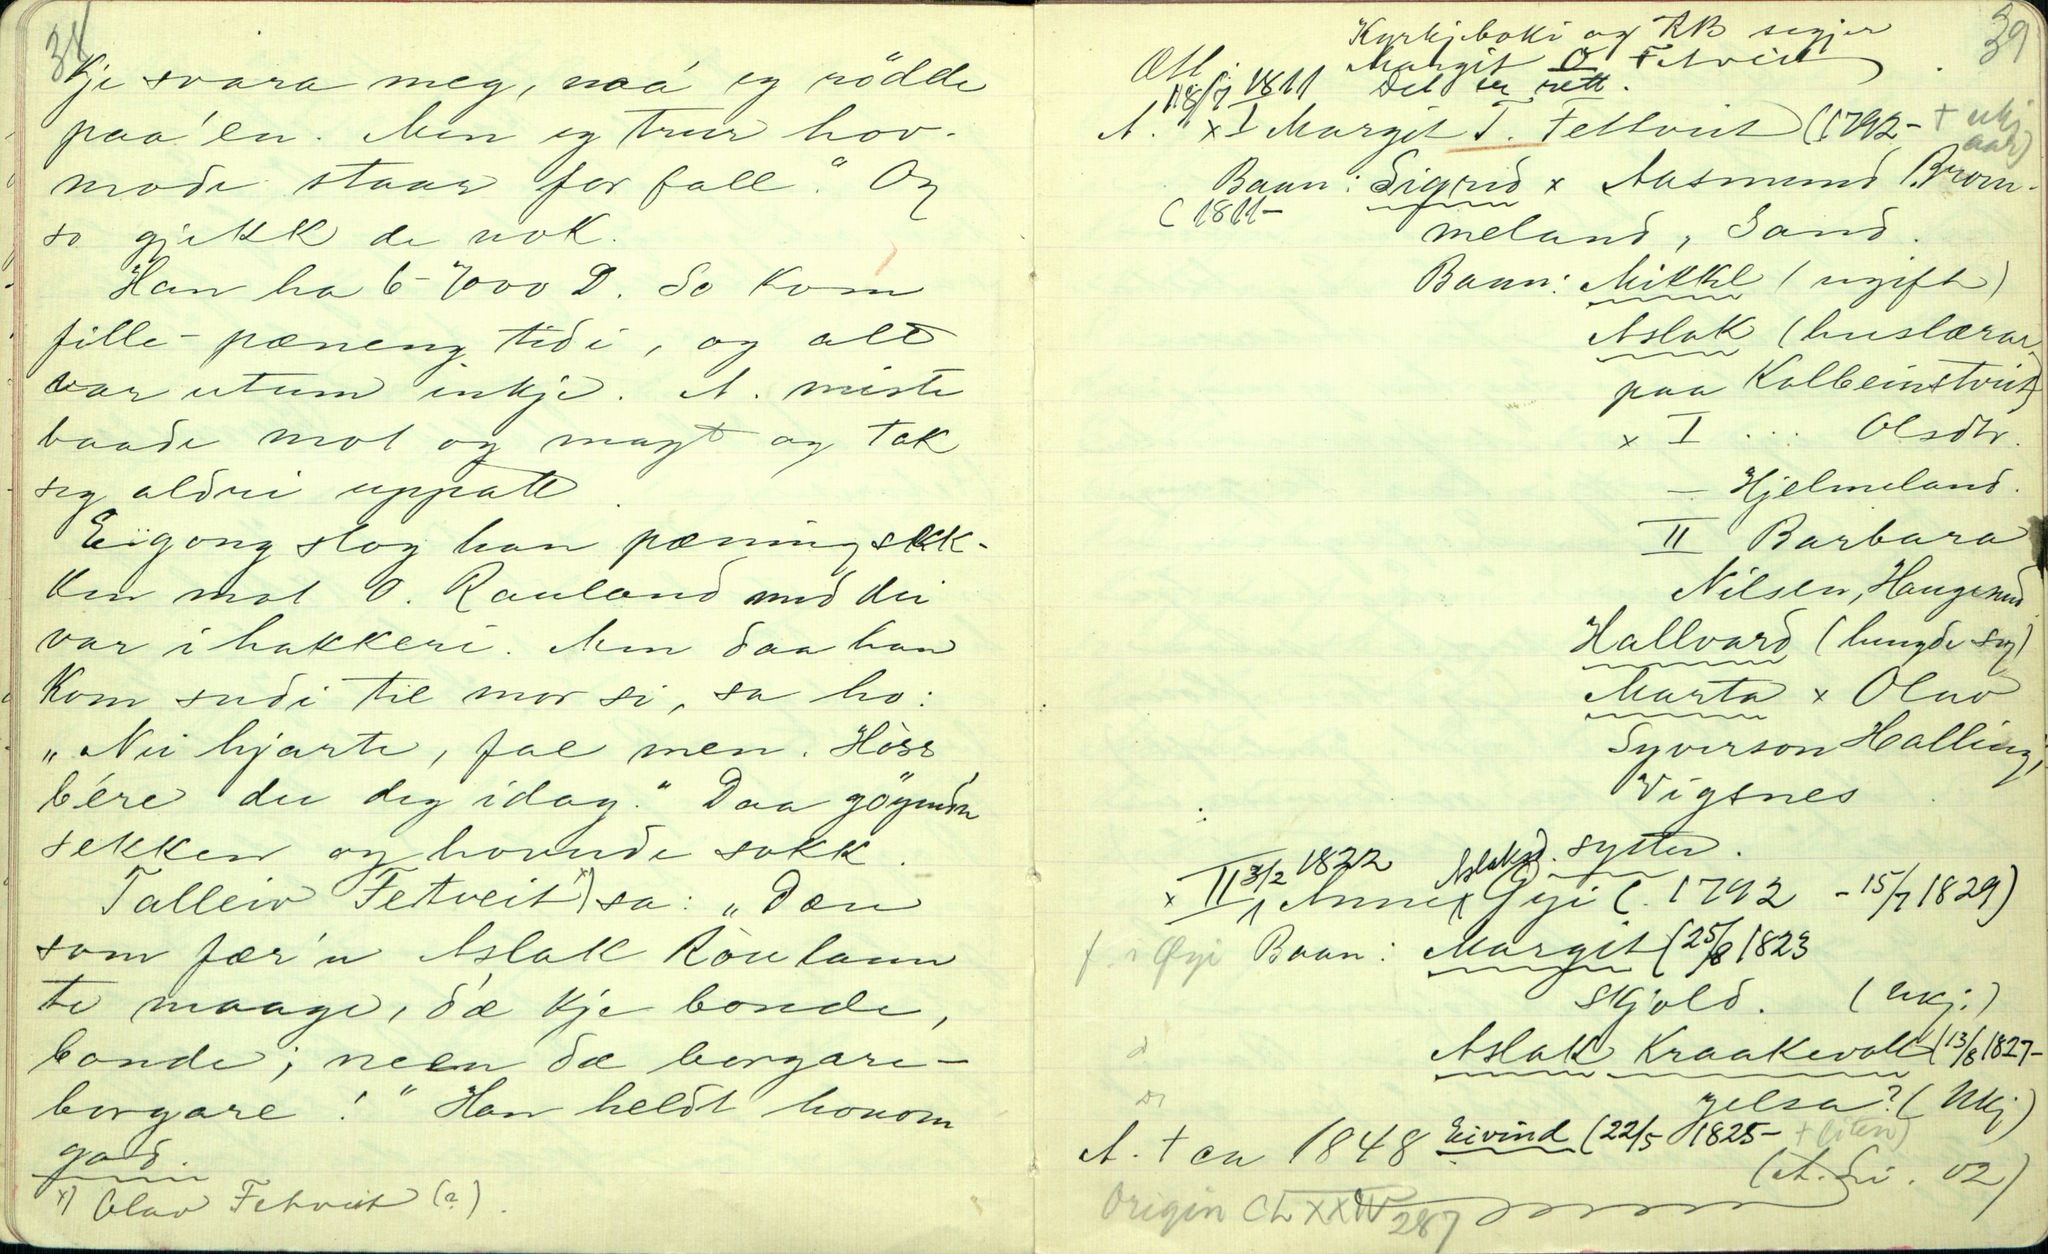 38
kje svara meg, naa' eg rödde
paa'en. Men eg trur hov-
mode staar for fall." Og
so gjekk de nok.
Han ha 6-7000 D. So kom
fille-pæneng tidi, og alt
var utum inkje. A. miste
baade mot og magt og tok
seg aldri uppatt.
Eigong slog han pæning sekk-
ken mot O. Rauland med dei
var i hakkeri. Men daa han
kom sudi til mor si, sa ho:
„Nei hjarte, fal men. Hòss
bére du deg idag." Daa göymdn
sekken og hovude sokk.
Talleiv Fetveit x) sa: „Dæn
som fær'n Aslak Ròulann
te maage, d'æ kje bonde,
bonde; neen dæ borgare-
borgare!" Han heldt honom
god.
x) Olav Fetveit (?).
39
Kyrkjeboki og RB segjer
Margit O Fetveit
Det er rett.
Ætt:
18/7 1811
A. x I Margit T. Fettveit (1792- + ukj aar)
Baan: Sigrid x Aasmund Brom-
(1811-
meland, Sand.
Baan: Mikkel (ugift)
Aslak (huslærar
paa Kolbeinstveit)
x I ... Olsdtr.
— Hjelmeland.
II Barbara
Nilsen, Haugesund
Hallvard (hengde seg)
Marta x Olav
Syverson Halling,
Vigsnes.
syster.
x II 3/2 1822 Anne Aslaksd. Øyi (. 1792 - 15/7 1829)
f. i Øyi Baan: Margit (25/8 1823
Skjold. (ukj.)
Aslak Kraakevoll (13/8 1827-
Jelsa? (Ukj)
A. + ca 1848 Eivind (22/5 1825- + liten)
(A. Li. 02)
Origin CLXXIV 287